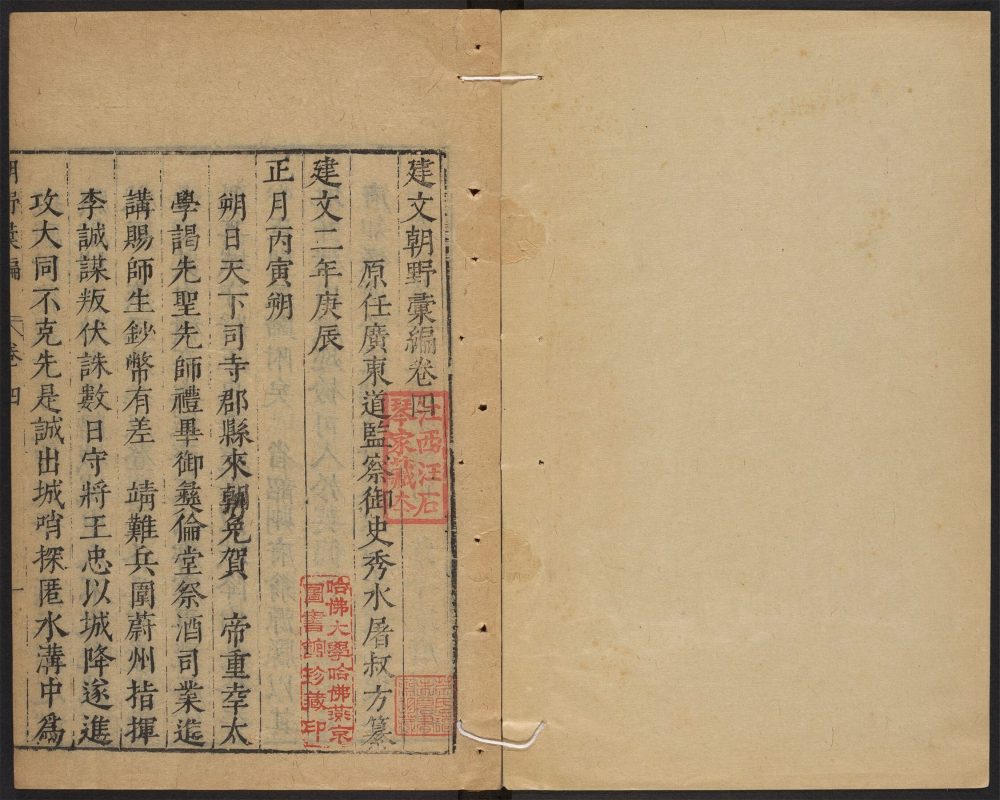 建文朝野彙編卷四
原任廣東道監察御史秀水屠叔方纂
建文二年庚辰
正月丙寅朔
朔日天下司寺郡縣來朝免賀　帝重幸太
學謁先聖先師禮畢御彝倫堂祭酒司業進
講賜師生鈔幣有差　靖難兵圍蔚州指揮
李誠謀叛伏誅數日守將王忠以城降遂進
攻大同不克先是誠出城哨探匿水溝中為
朝野彙編
卷四
一
江西汪石
琴家藏本
哈佛大學哈佛燕京
圖書館珍藏印